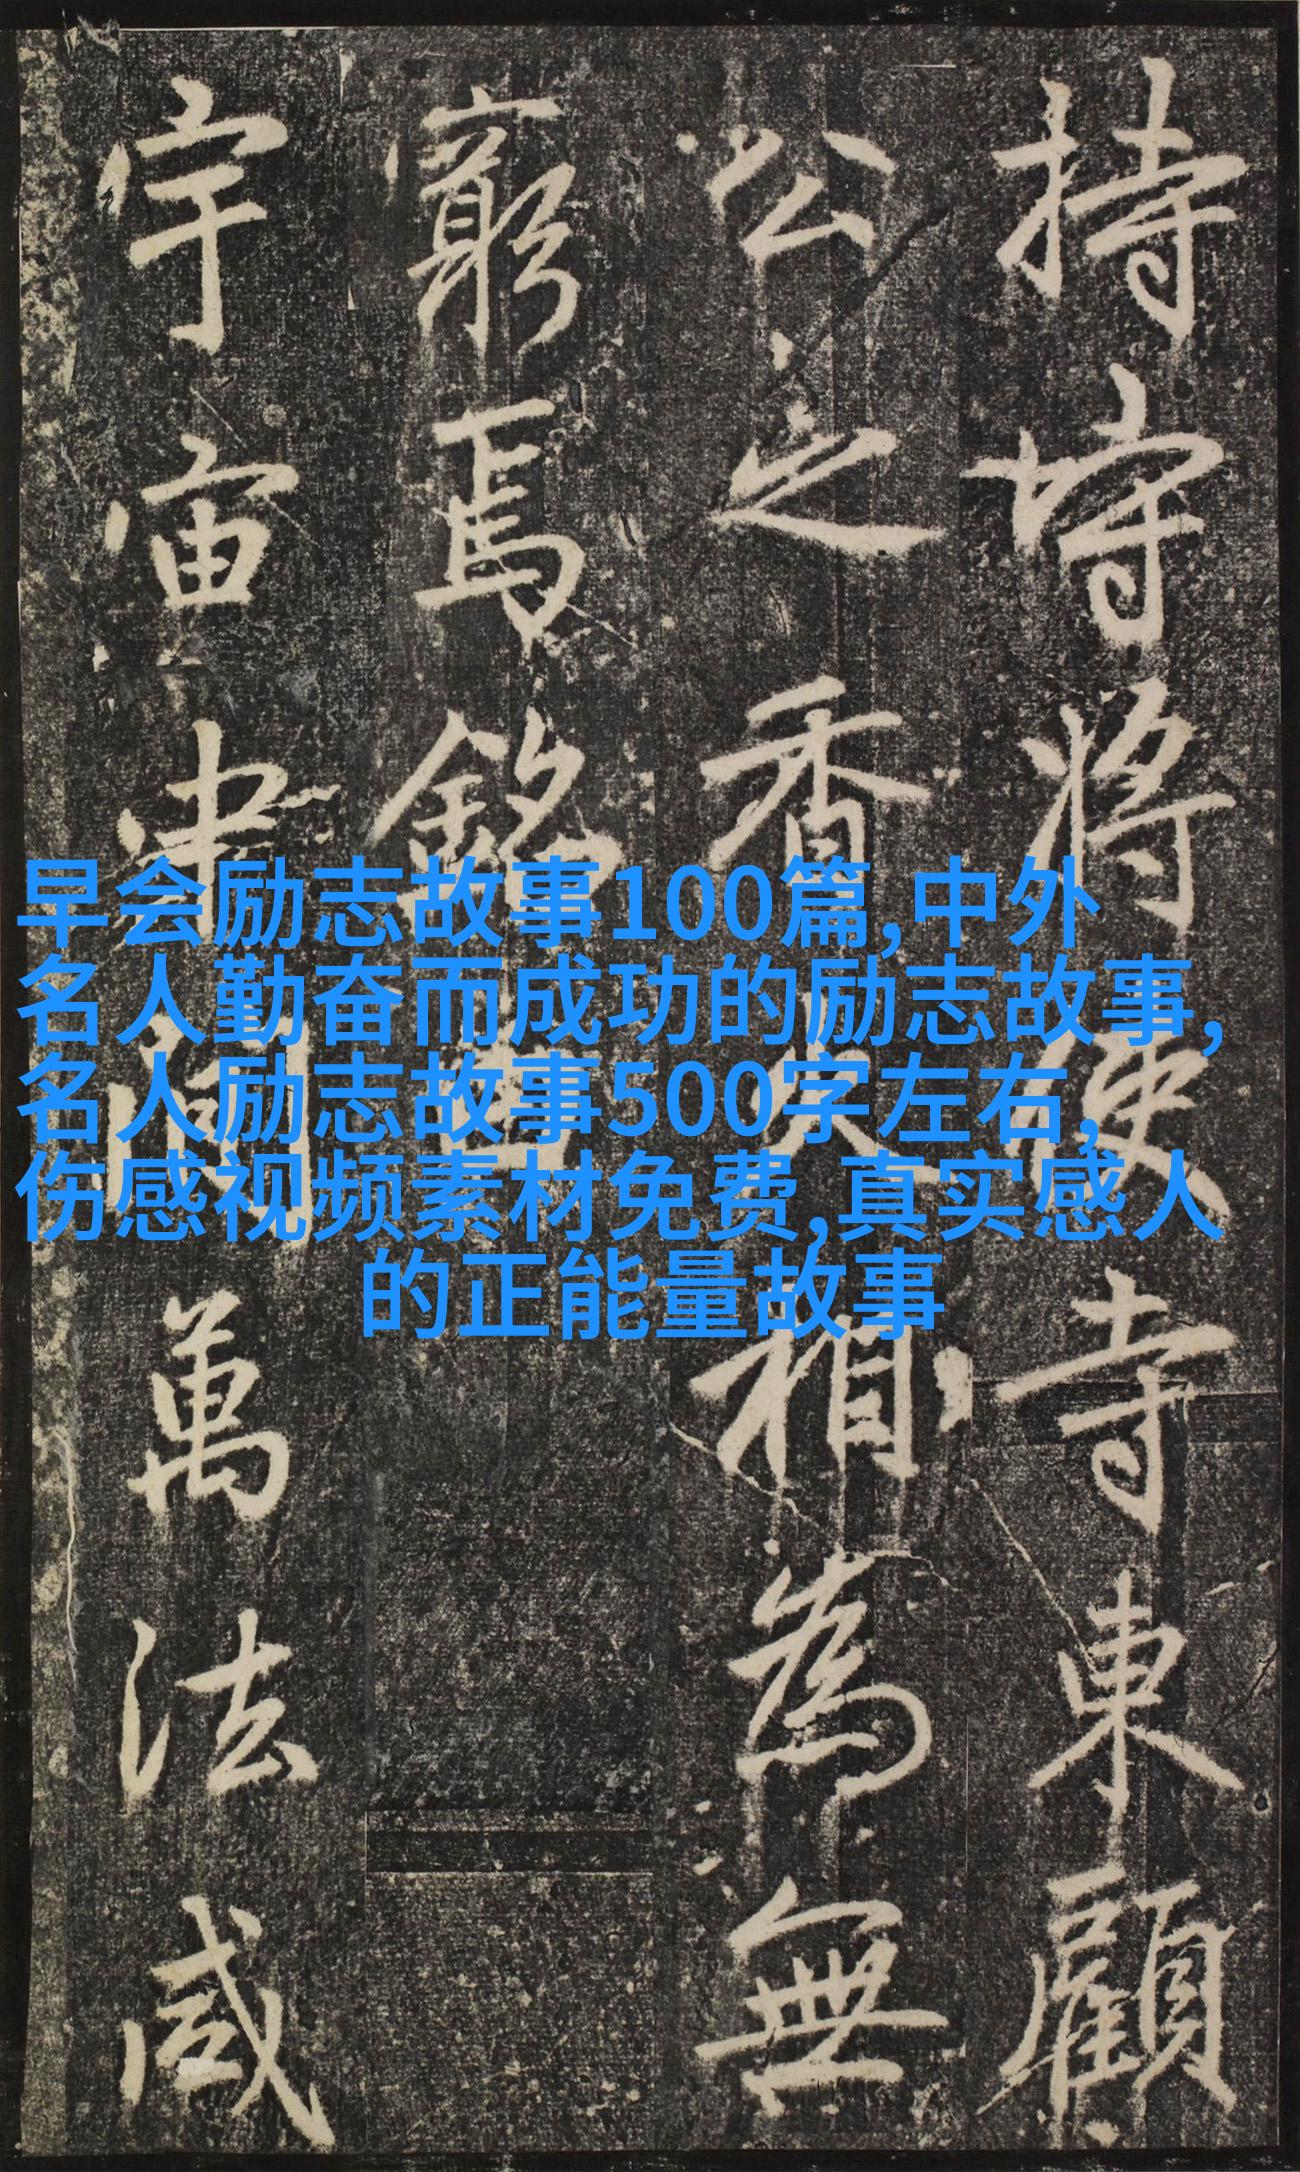 早会励志故事100篇,中外
名人勤奋而成功的励志故事,
名人励志故事500字左右,
伤感视频素材免费,真实感人
的正能量故事
持將寺東顧
公之香火相為無
窮焉銘曰
宇宙萬法咸